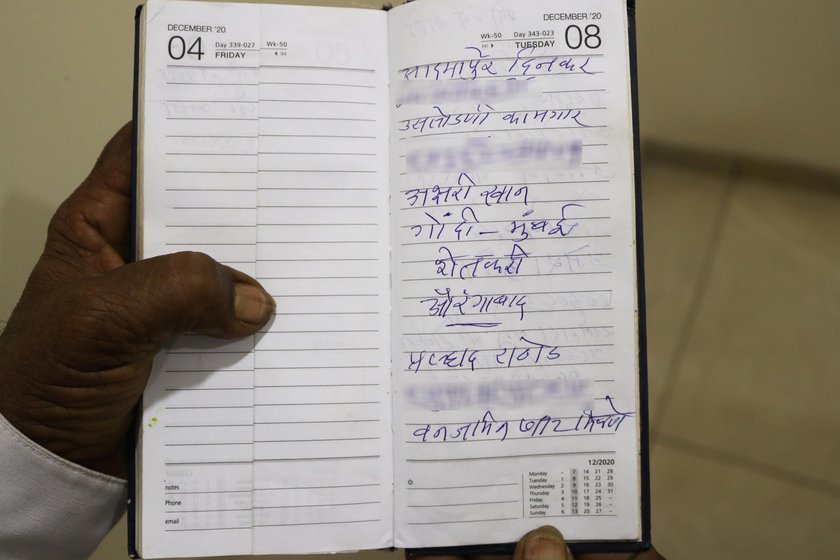 DECEMBER '20
04
Day 339-027
Wk-50
FRIDAY
notes
Phone
email
DECEMBER '20
Wk-50
Day 343-023
TUESDAY
08
दिनकर
उसतोडणी कामगार
खान
गोंदी – मुंबई
शेतकरी
औरंगाबाद
प्रल्हाद राठोड
12/2020
Monday – 7 14 21 28
Tuesday 1 8 15 22 29
Wednesday 2 9 16 23 30
Thursday 3 10 17 24 31
Friday 4 11 18 25 –
Saturday 5 12 19 26 –
Sunday 6 13 20 27 –